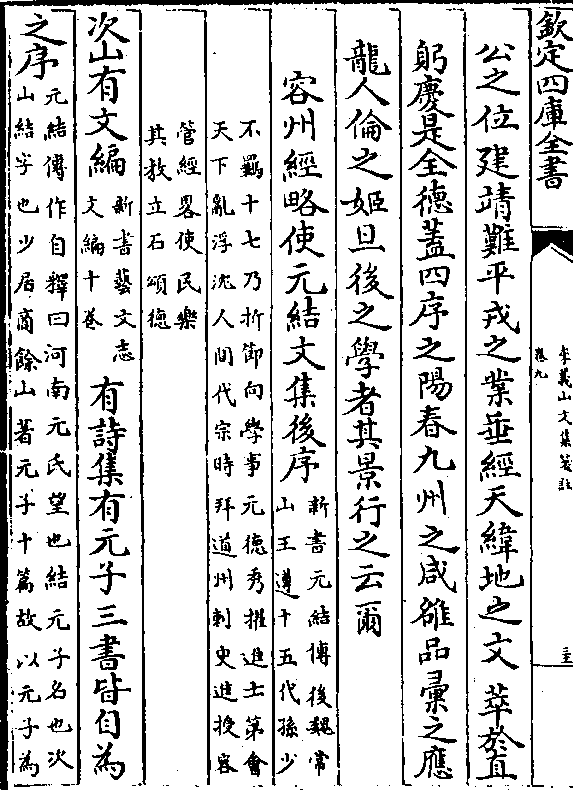 欽定四庫全書
李義山文集箋註
卷九
公之位建靖難平戎之業垂經天緯地之文萃於直
躬慶是全德蓋四序之陽春九州之咸雒品彚之應
龍人倫之姬旦後之學者其景行之云爾
容州經略使元結文集後序
新書元結傳後魏常
山王遵十五代孫少
不羈十七乃折節向學事元德秀擢進士第會
天下亂浮沈人間代宗時拜道州刺史進授容
管經畧使民樂
其教立石頌德
次山有文編
新書藝文志
文編十卷
有詩集有元子三書皆自為
之序
元結傳作自釋曰河南元氏望也結元子名也次
山結字也少居商餘山著元子十篇故以元子為